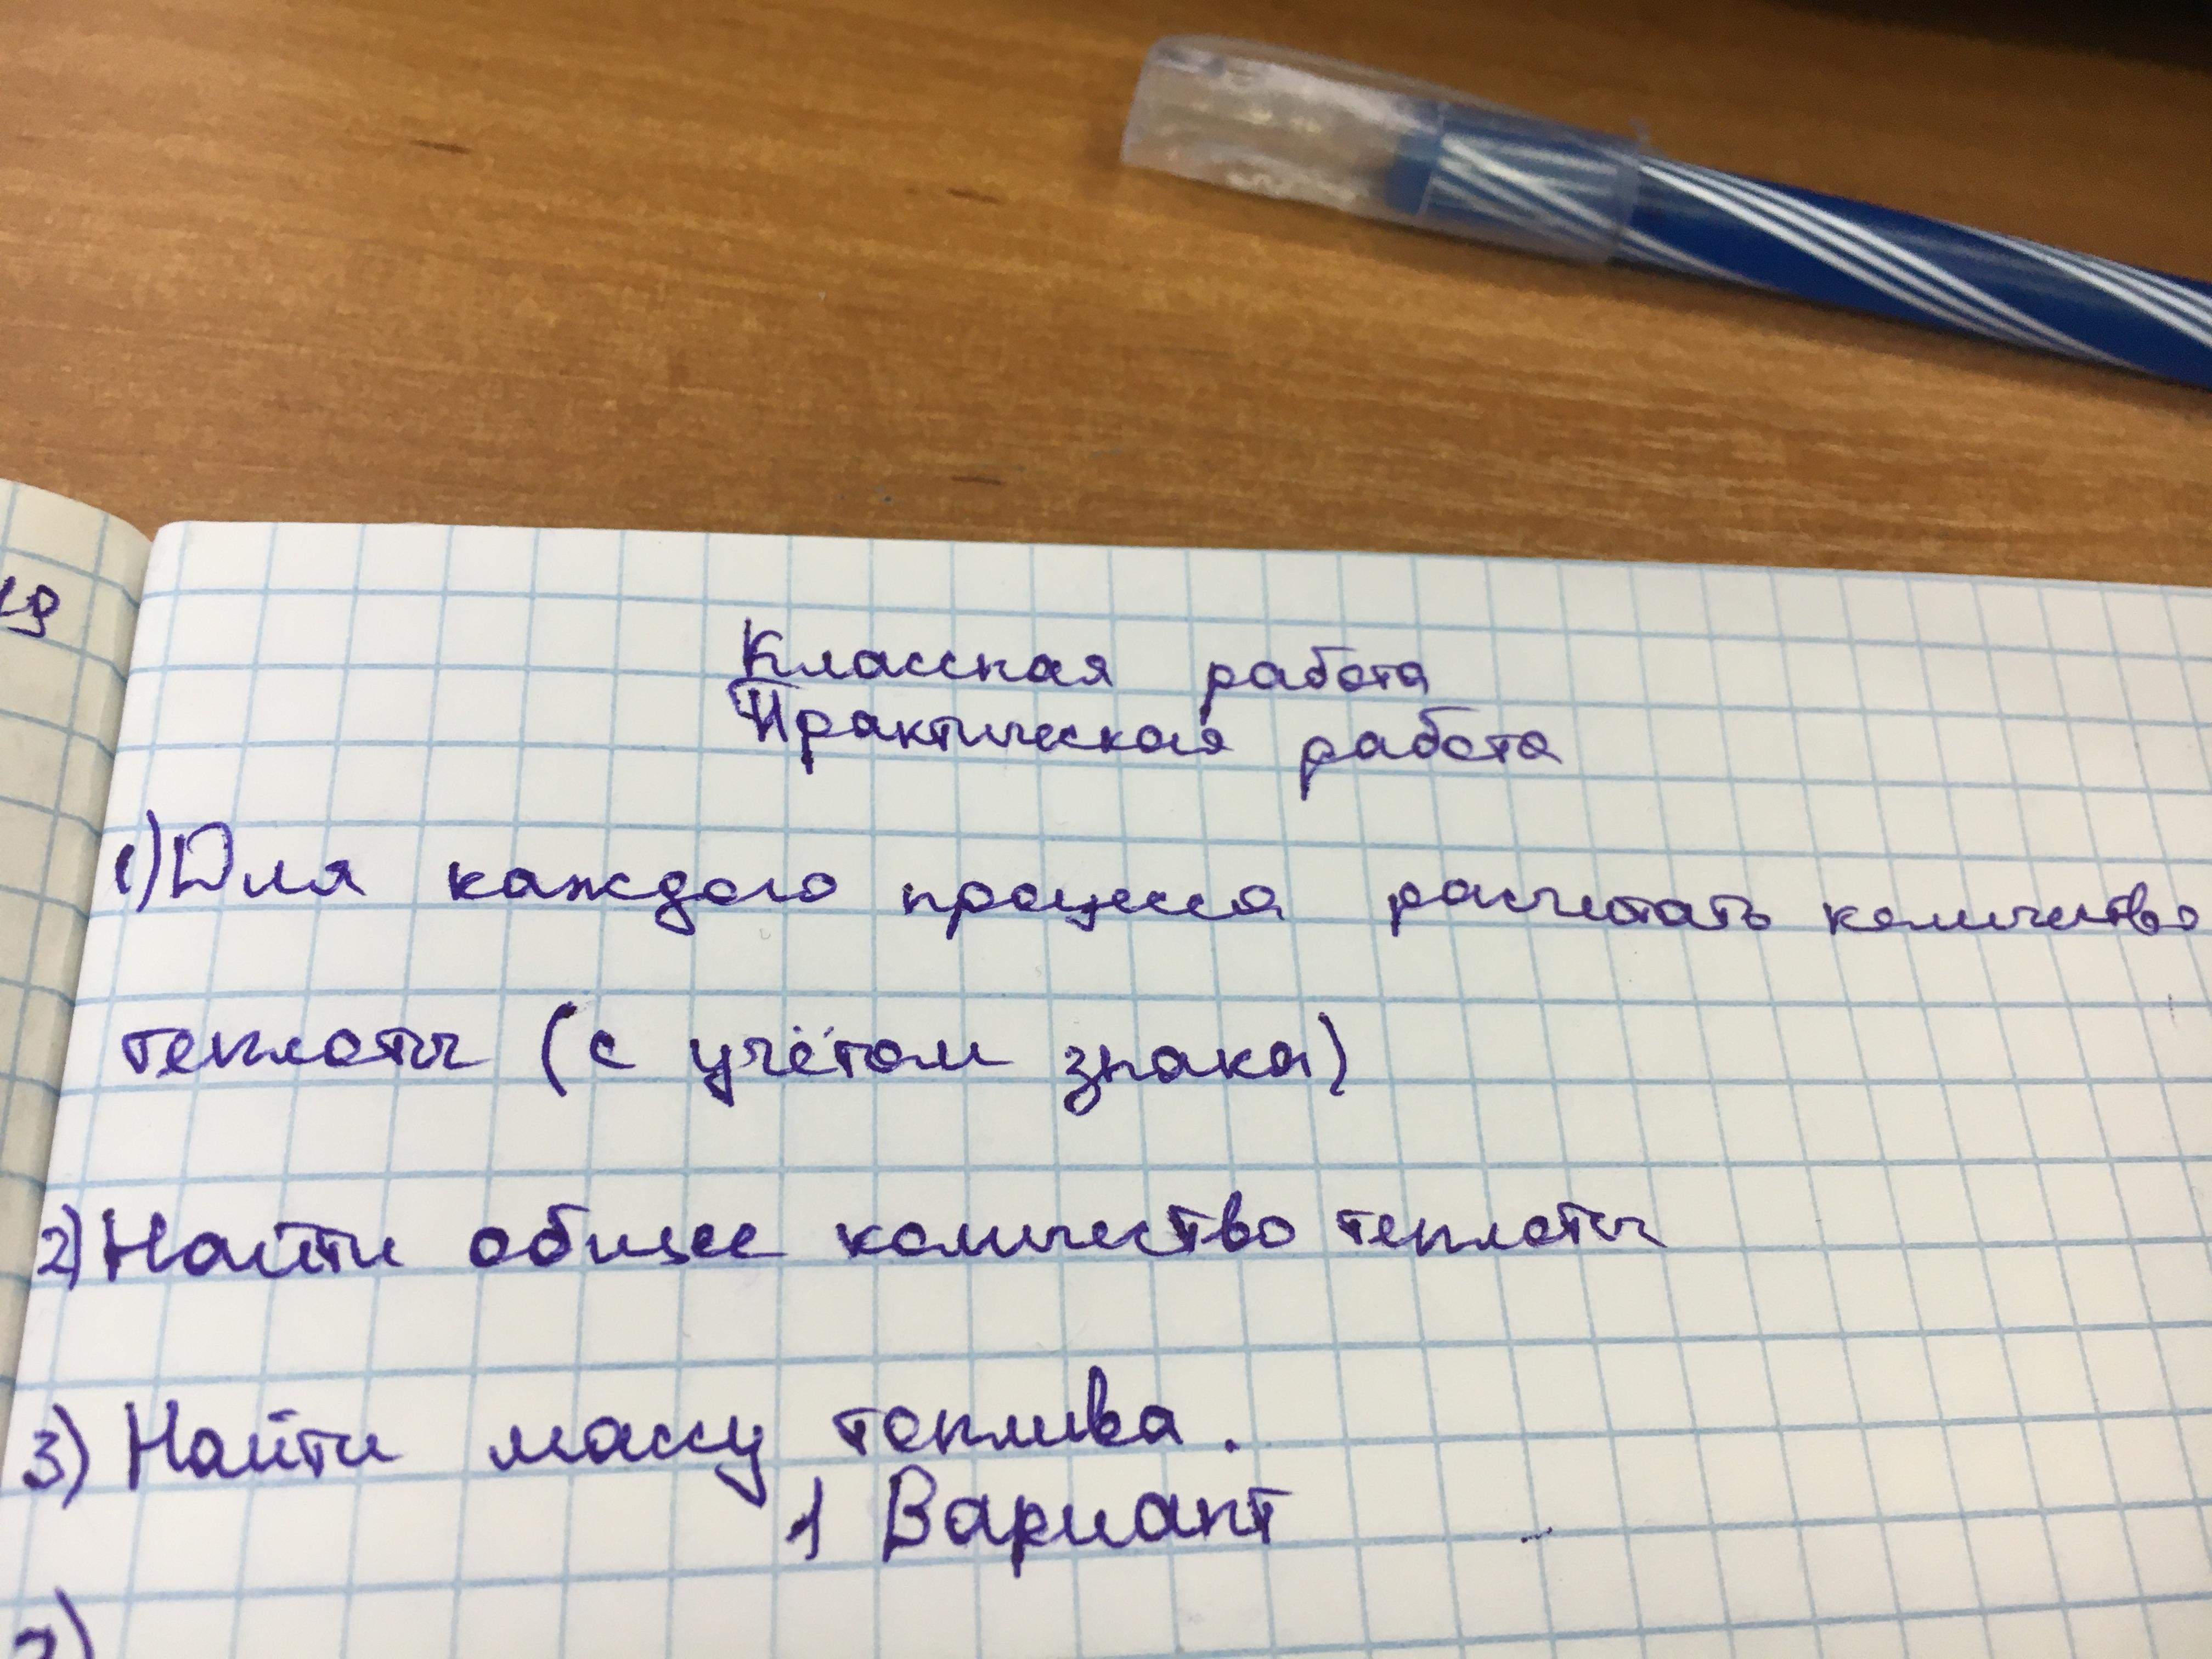 19
Классная работа
Практическая работа
1) Для каждого процесса расчитать количество
теплоты (с учётом знака)
2) Найти общее количество теплоты
3) Найти массу топлива.
1 Вариант